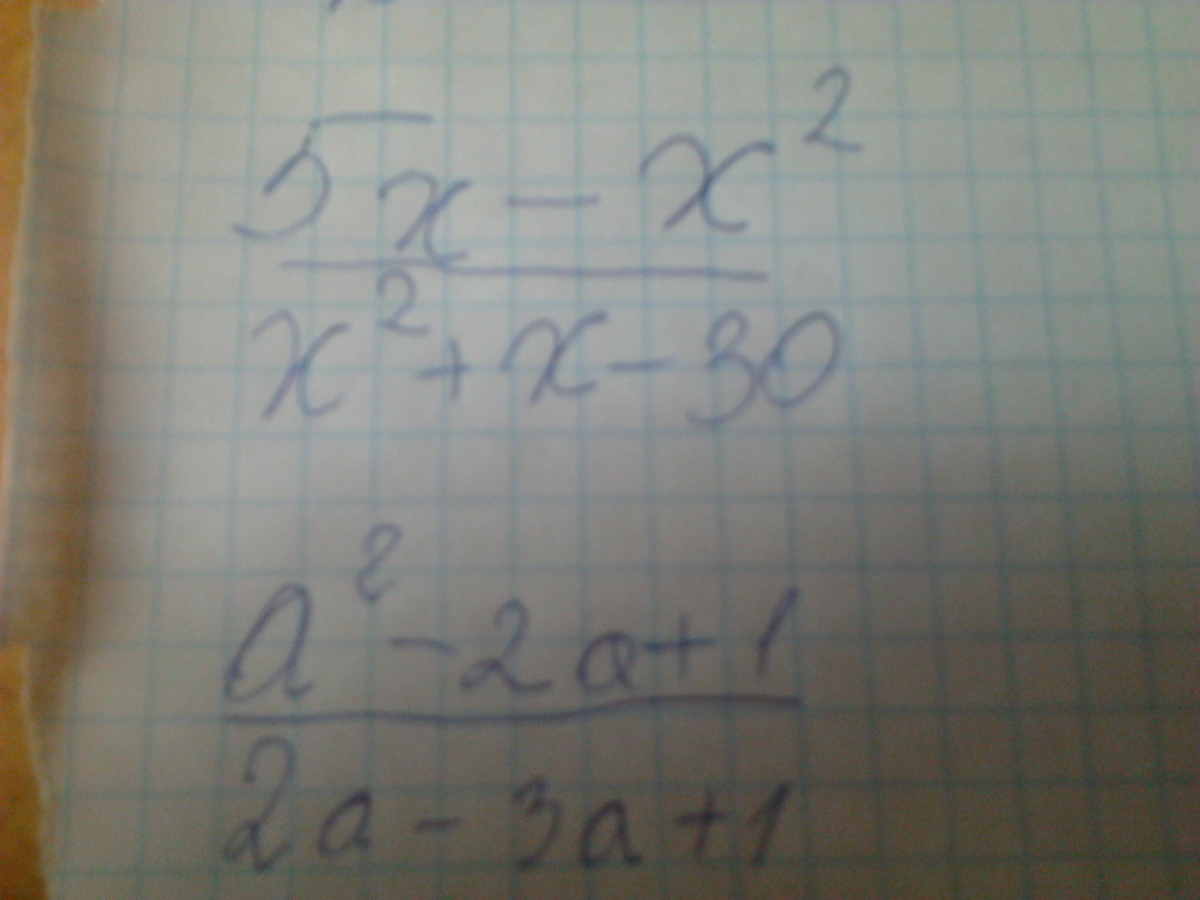 5x - x²
x² + x - 30
a² - 2a + 1
2a - 3a + 1